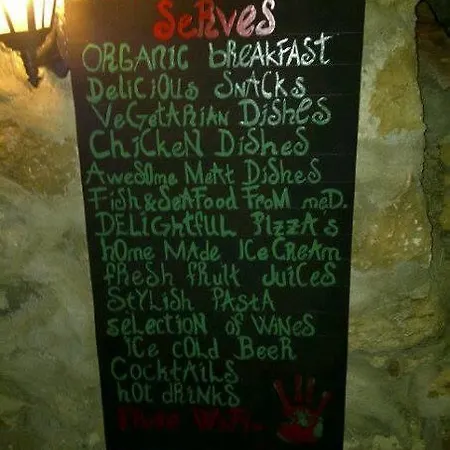 SeRVeS
ORGANIC bReAKFAST
DeLicious SNACKS
VeGeTARiAN DisHeS
CHicKeN DisHeS
AweSOMe MeAT DisHeS
FisH & SeAFooD FRoM MeD.
DeLiGHTFuL PizzA's
HOMe MADe ICe CReAM
fResH fRuiT JuiCeS
STYLisH PASTA
seLecTiON oF WiNeS
iCe coLD BeeR
CoCKTAiLS
HoT DRiNKS
FRee WiFi.